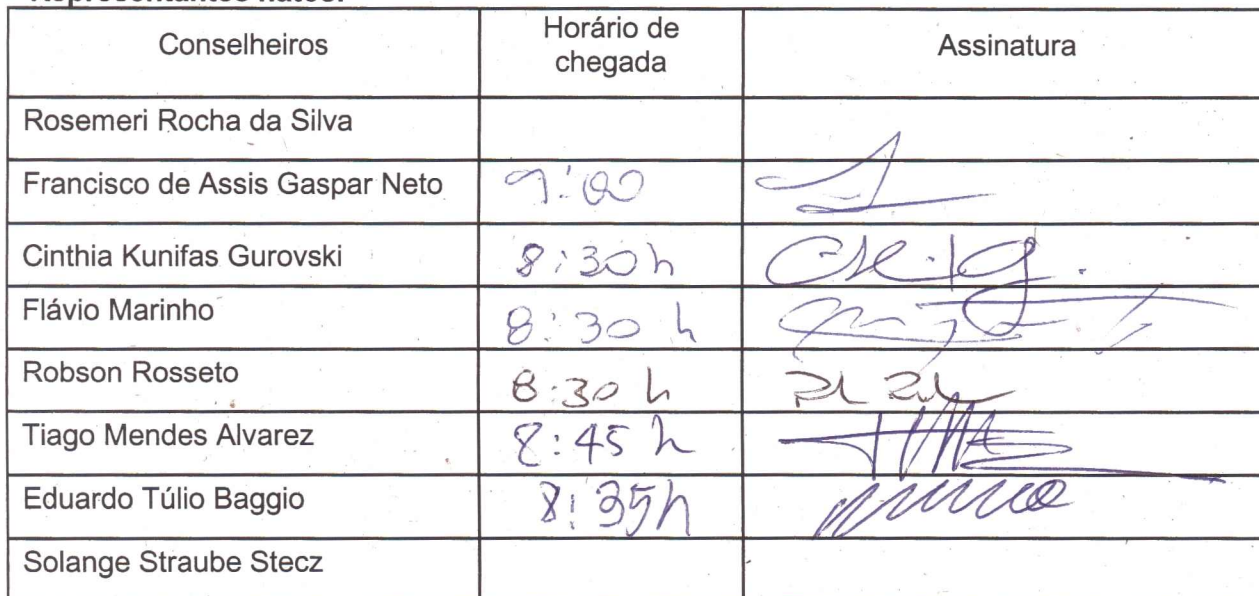 Representantes natos:
Conselheiros Horário de chegada Assinatura
Rosemeri Rocha da Silva
Francisco de Assis Gaspar Neto 9:00
Cinthia Kunifas Gurovski 8:30h
Flávio Marinho 8:30 h
Robson Rosseto 8:30 h
Tiago Mendes Alvarez 8:45 h
Eduardo Túlio Baggio 8:35h
Solange Straube Stecz